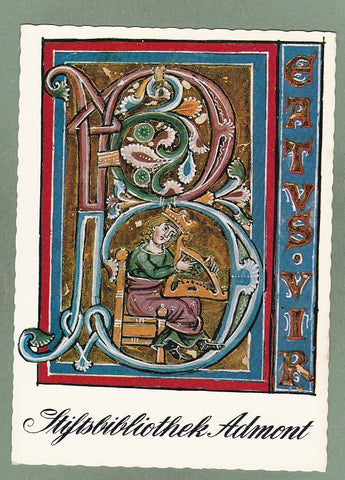 B
EATVS·VIR
Stiftsbibliothek Admont